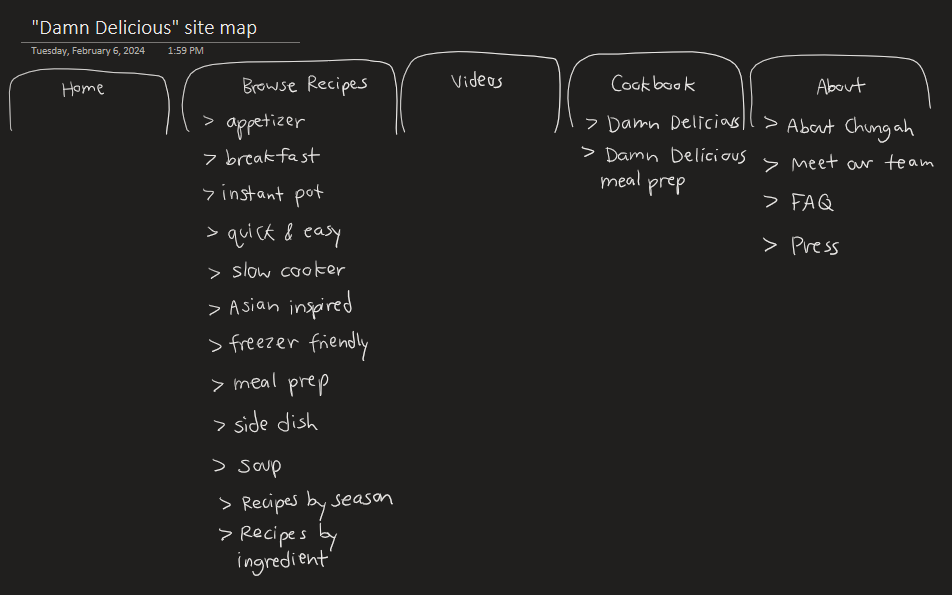 "Damn Delicious" site map
Tuesday, February 6, 2024 1:59 PM
Home
Browse Recipes
> appetizer
> breakfast
> instant pot
> quick & easy
> slow cooker
> Asian inspired
> freezer friendly
> meal prep
> side dish
> soup
> Recipes by season
> Recipes by
ingredient
Videos
Cookbook
> Damn Delicious
> Damn Delicious
meal prep
About
> About Chungah
> Meet our team
> FAQ
> Press